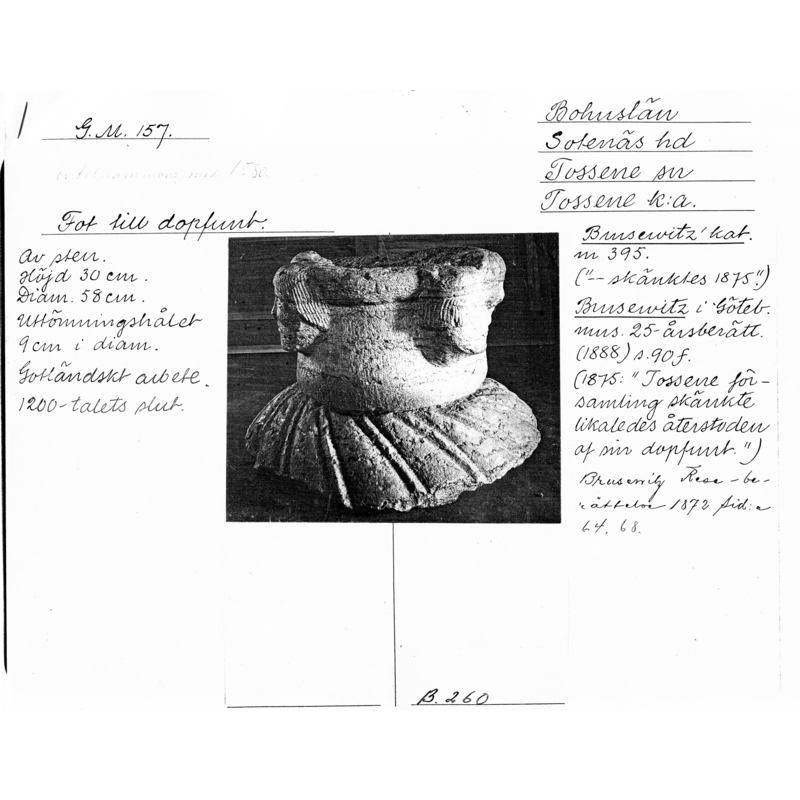 G.M. 157.
1580
Fot till dopfunt.
Av sten.
Höjd 30 cm.
Diam. 58 cm.
Uttömningshålet
9 cm i diam.
Gotländskt arbete.
1200-talets slut.
Bohuslän
Sotenäs hd
Tossene sn
Tossene k:a.
Brusewitz' kat.
nr 395.
("-- skänktes 1875".)
Brusewitz i Göteb.
mus. 25-årsberätt.
(1888) s. 90 f.
(1875: "Tossene för-
samling skänkte
likaledes återstoden
af sin dopfunt.")
Brusewitz Rese-be-
rättelse 1872 sid:a
64, 68.
B. 260